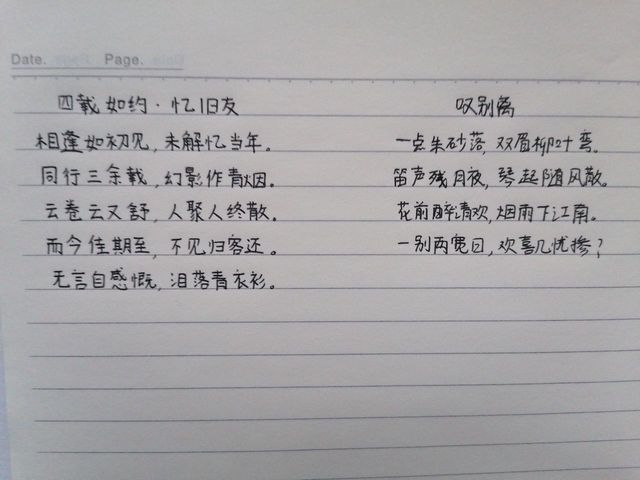 Date. Page.
四载如约·忆旧友
相逢如初见，未解忆当年。
同行三余载，幻影作青烟。
云卷云又舒，人聚人终散。
而今佳期至，不见归客还。
无言自感慨，泪落青衣衫。
叹别离
一点朱砂落，双眉柳叶弯。
笛声残月夜，琴起随风散。
花前醉清欢，烟雨下江南。
一别两宽日，欢喜几忧掺？